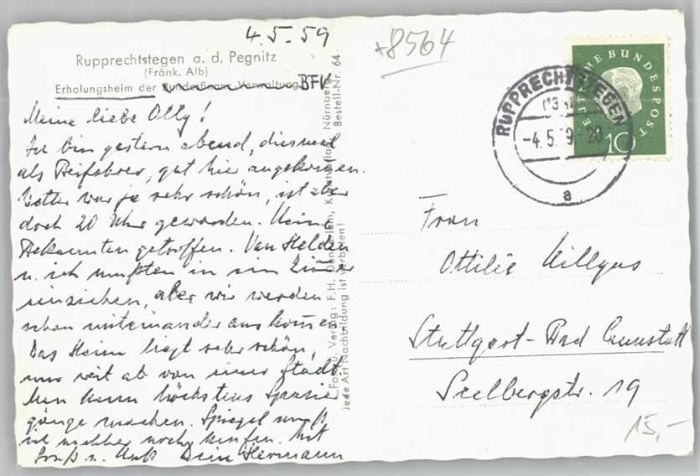 4.5.59
*8564
Rupprechtstegen a. d. Pegnitz
(Fränk. Alb)
Erholungsheim der Bundesfinanz-Verwaltung BFV
Meine liebe Olly!
Ich bin gestern abend, diesmal
als Beifahrer, gut hier angekommen.
Wetter war ja sehr schön, ist aber
doch 20 Uhr geworden. Keine
Bekannten getroffen. Van Helden
u. ich mußten in ein Zimmer
einziehen, aber wir werden
schon miteinander auskommen.
Das Heim liegt sehr schön,
nur weit ab von einer Stadt.
Man kann höchstens Spazier
gänge machen. Spiegel muß
ich nachher noch kaufen. Mit
Gruß u. Kuß Dein Hermann
Foto u. Verlag: F.H. Nürnberg
Bestell-Nr. 64
Jede Art Nachbildung ist verboten!
DEUTSCHE BUNDESPOST
10
RUPPRECHTSTEGEN
-4.5.59.-20
a
Frau
Ottilie Killgus
Stuttgart-Bad Cannstatt
Seelbergstr. 19
15,-